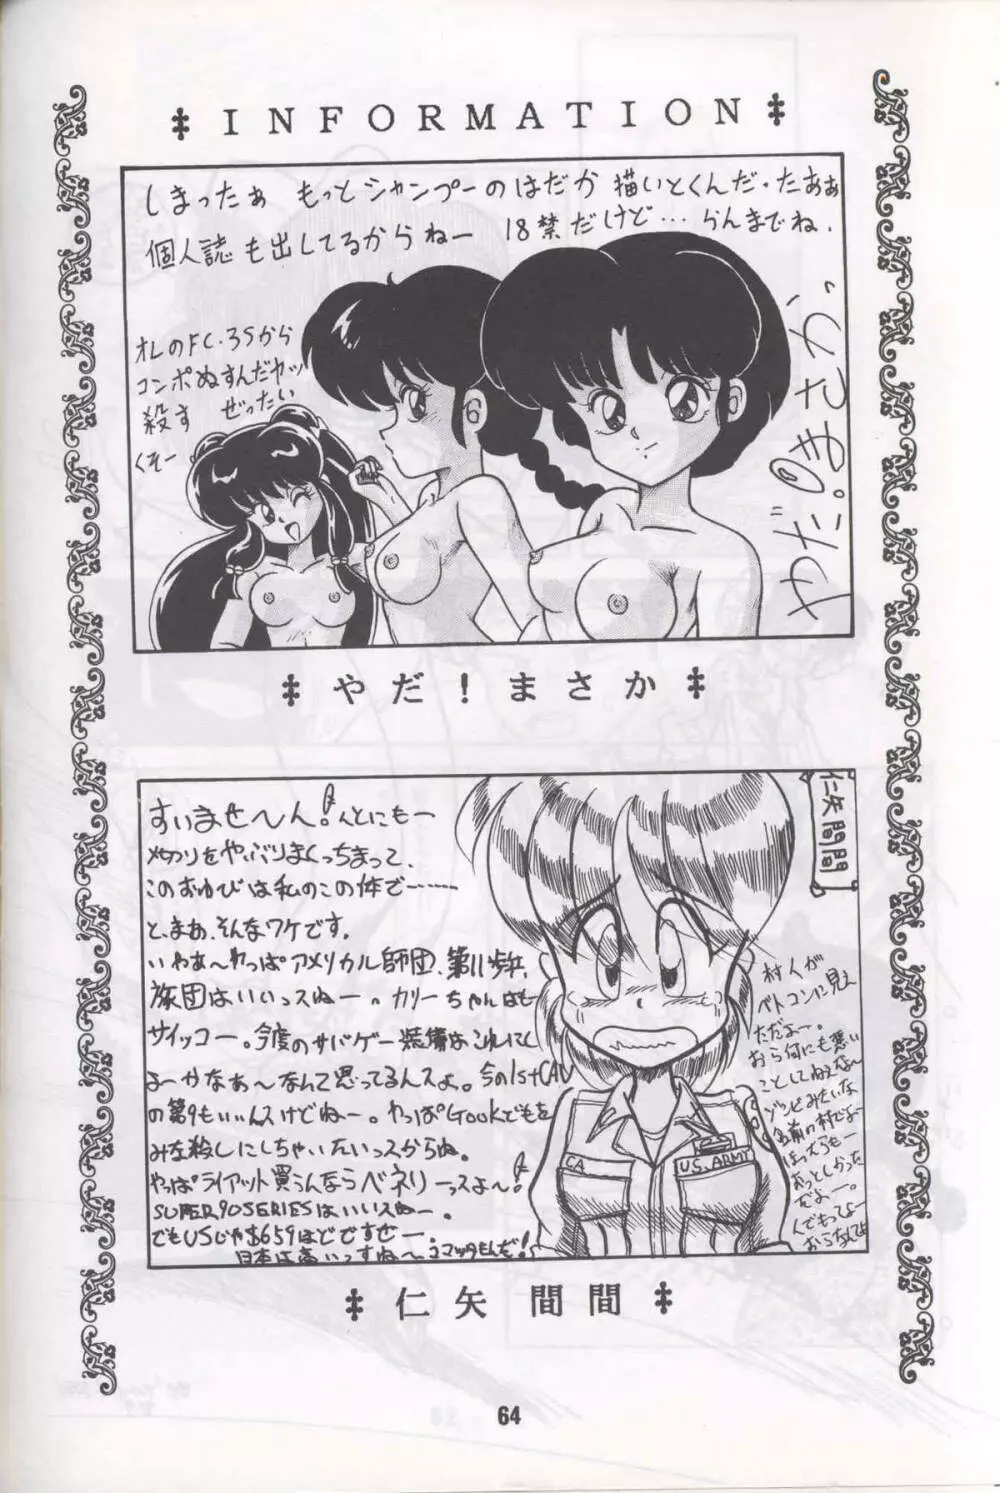 INFORMATION
しまったぁ もっとシャンプーのはだか描いとくんだ・たあぁ
個人誌も出してるからねー 18禁だけど…らんまでね.
オレのFC-3Sから
コンポぬすんだヤツ
殺す ぜったい
くそー
やだ!まさか
仁矢間間
すいませ〜ん!んとにもー
〆切りをやぶりまくっちまって、
このおゆびは私のこの体で……
と、まあ、そんなワケです。
いやぁ〜やっぱアメリカル師団、第11歩兵
旅団はいいっスねー。カリーちゃんはも
サイッコー。今度のサバゲー装備はこれにし
よーかなぁ〜なんて思ってるんスよ。今の1stCAV
の第9もいいんスけどねー。やっぱGookどもを
みな殺しにしちゃいたいっスからね。
やっぱライアット買うんならベネリーっスよ〜!
SUPER90SERIESはいいスねー。
でもUSじゃ$659ほどですぜー.
日本は高いっすね〜コマッタもんだ!
村人が
ベトコンに見え
ただよー。
おら何にも悪い
ことしてねえな〜
ゾンビみたいな
名前の村でよー
おっとしかった
だよー。
んでもってよー
CA
US.ARMY
仁矢 間間
64